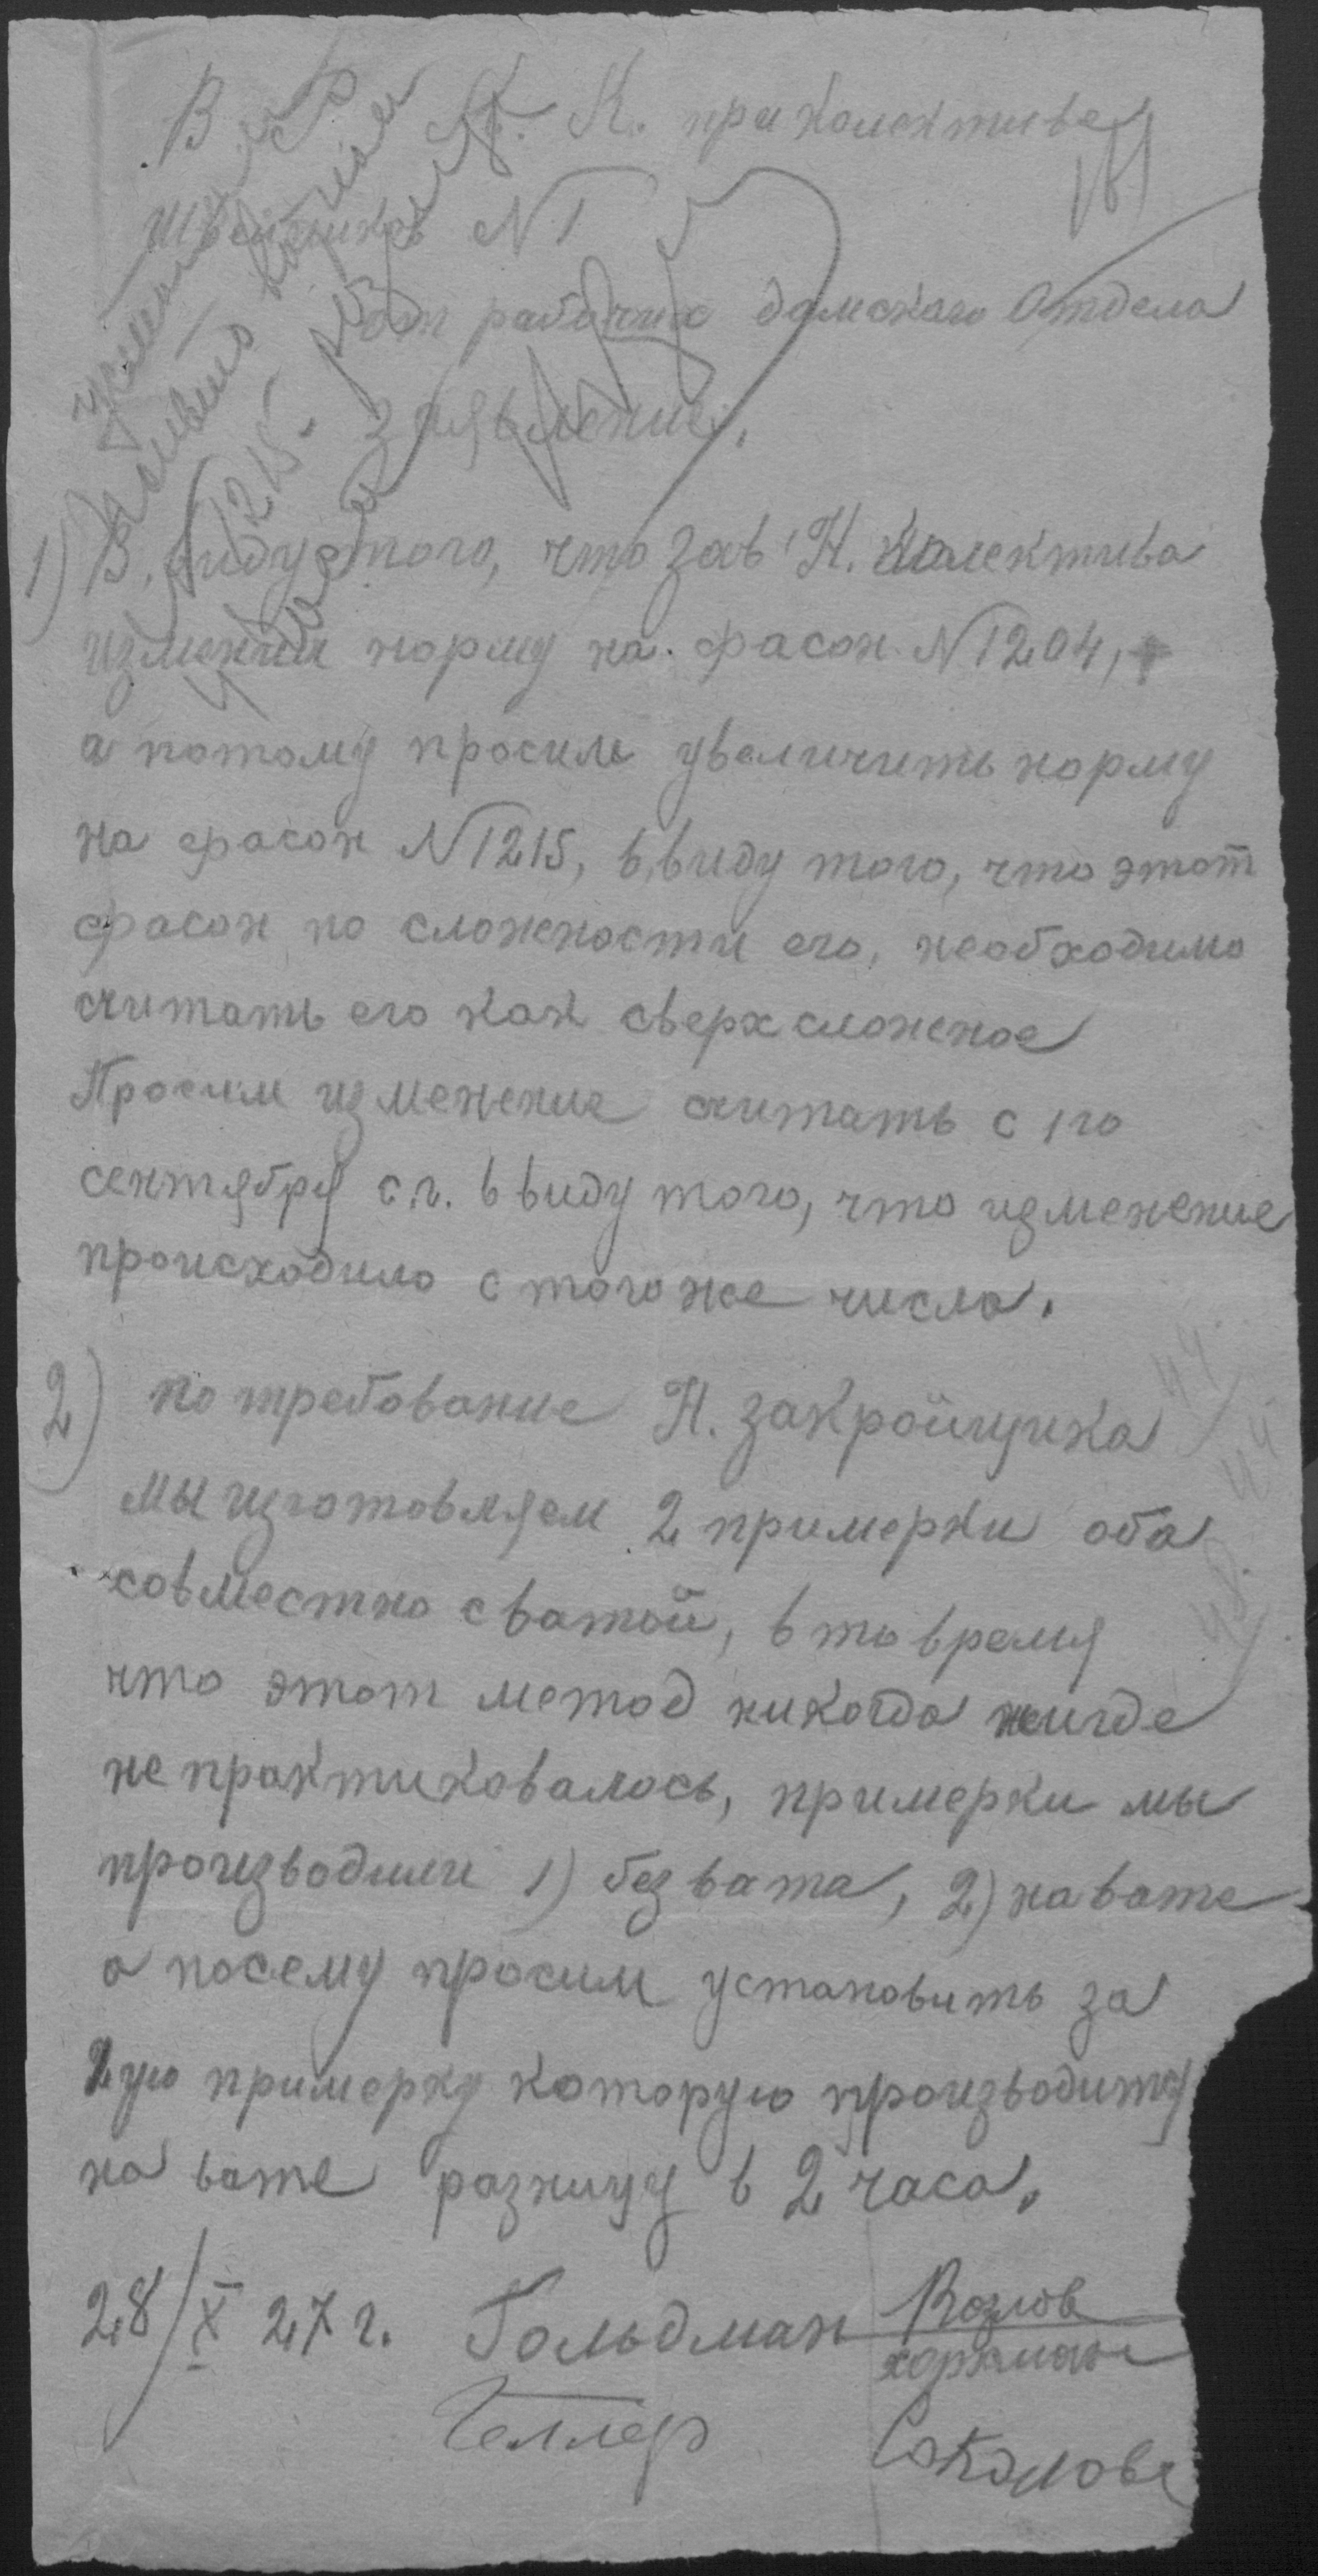 В Р. К. К. при колективе
швейников N 1
от рабочих дамского Отдела
Заявление.
1) В виду того, что зав. Н. колектива
изменил норму на фасон N 1204,
а потому просим увеличить норму
на фасон N 1215, в виду того, что этот
фасон по сложности его, необходимо
считать его как сверхсложное
Просим изменение считать с 1го
сентября с.г. в виду того, что изменение
происходило с того же числа.
2) по требование Н. закройщика
мы изготовляем 2 примерки оба
совместно с ватой, в то время
что этот метод никогда нигде
не практиковалось, примерки мы
производили 1) без вата, 2) на вате
а посему просим установить за
2ую примерку которую производиться
на вате разницу в 2 часа.
28/X 27 г. Гольдман Козлов
Геллер Соколов